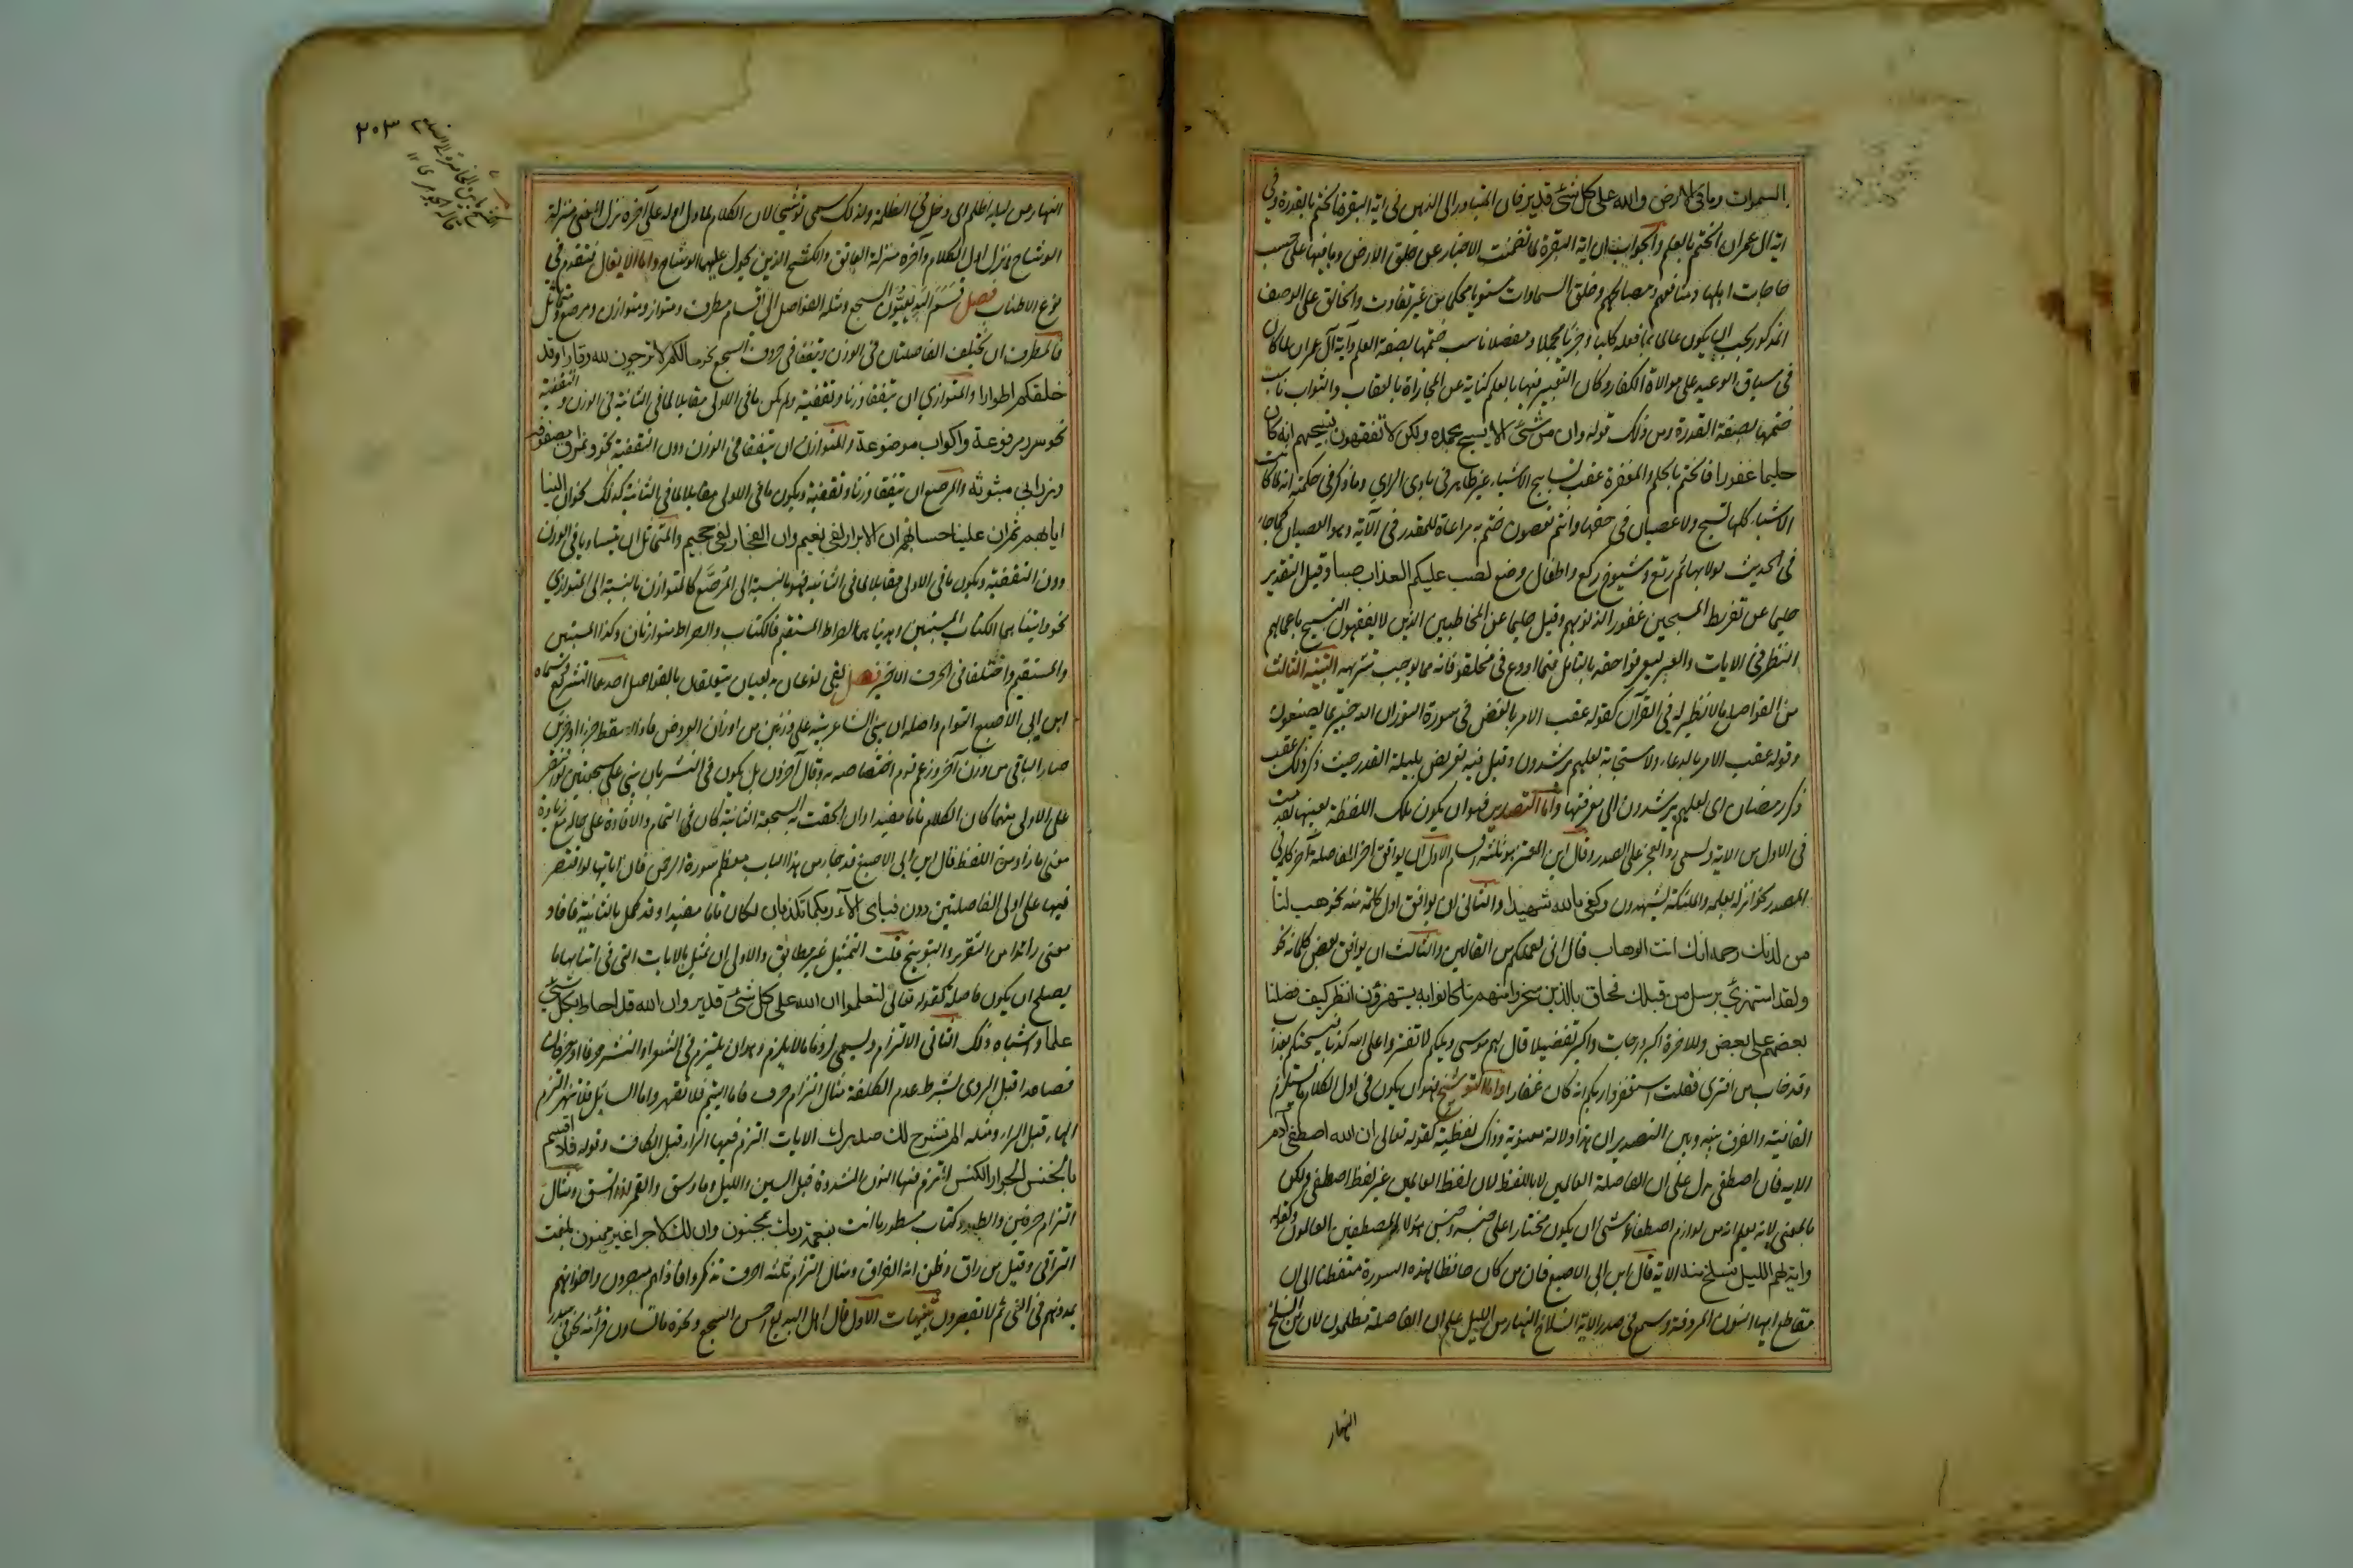 السموات وما في الارض والله على كل شئ قدير فان المتبادر الى الذهن في اية البقرة الختم بالقدرة وفي
اية ال عمران الختم بالعلم والجواب ان اية البقرة لما تضمنت الاخبار عن خلق الارض وما فيها على حسب
حاجات اهلها ومنافعهم ومصالحهم وخلق السماوات مستويا محكما من غير تفاوت والخالق على الوصف
المذكور يجب ان يكون عالما بما فعله كليا وجزئيا مجملا ومفصلا ناسب ختمها بصفة العلم وآية آل عمران لما كان
في سياق الوعيد على موالاة الكفار وكان التعبير فيها بالعلم كناية عن المجازاة بالعقاب والثواب ناسب
ختمها بصفة القدرة ومن ذلك قوله وان من شئ الا يسبح بحمده ولكن لا تفقهون تسبيحهم انه كان
حليما غفورا فالختم بالحلم والمغفرة عقب تسابيح الاشياء غير ظاهر في بادي الراي وما ذكر في حكمته انه لما كانت
الاشياء كلها تسبح ولا عصيان في حقها وانتم تعصون ختم به مراعاة للمقدر في الآية وهو العصيان كما جاء
في الحديث لولا بهائم رتع وشيوخ ركع واطفال رضع لصب عليكم العذاب صبا وقيل التقدير
حليما عن تفريط المسبحين غفورا لذنوبهم وقيل حليما عن المخاطبين الذين لا يفقهون التسبيح باهمالهم
النظر في الايات والعبر ليعرفوا حقه بالتامل فيما اودع في مخلوقاته مما يوجب تنزيهه التنبيه الثالث
من الفواصل ما لا نظير له في القرآن كقوله عقب الامر بالغض في سورة النور ان الله خبير بما يصنعون
وقوله عقب الامر بالدعاء والاستجابة لعلهم يرشدون وقيل فيه تعريض بليلة القدر حيث ذكر ذلك عقب
ذكر رمضان اى لعلهم يرشدون الى معرفتها واما التصدير فهو ان يكون تلك اللفظة بعينها تقدمت
في الاول من الاية ويسمى رد العجز على الصدر وقال ابن المعتز هو ثلثة اقسام الاول ان يوافق اخر الفاصلة آخر كلمة في
الصدر نحو انزله بعلمه والملئكة يشهدون وكفى بالله شهيدا والثاني ان يوافق اول كلمة منه نحو هب لنا
من لدنك رحمة انك انت الوهاب قال اني لعملكم من القالين والثالث ان يوافق بعض كلماته نحو
ولقد استهزئ برسل من قبلك فحاق بالذين سخروا منهم ما كانوا به يستهزؤن انظر كيف فضلنا
بعضهم على بعض وللاخرة اكبر درجات واكبر تفضيلا قال لهم موسى ويلكم لا تفتروا على الله كذبا فيسحتكم بعذاب
وقد خاب من افترى فقلت استغفروا ربكم انه كان غفارا واما التوشيح فهو ان يكون في اول الكلام ما يستلزم
القافية والفرق بينه وبين التصدير ان هذا دلالته معنوية وذاك لفظية كقوله تعالى ان الله اصطفى آدم
الاية فان اصطفى يدل على ان الفاصلة العالمين لا باللفظ لان لفظ العالمين غير لفظ اصطفى ولكن
بالمعنى لانه يعلم انه من لوازم اصطفاء شئ ان يكون مختارا على جنسه وجنس هؤلاء المصطفين العالمون وكقوله
واية لهم الليل نسلخ منه الاية قال ابن ابى الاصبع فان من كان حافظا لهذه السورة متفطنا الى ان
مقاطع ايها النون المردفة وسمع في صدر الاية انسلاخ النهار من الليل علم ان الفاصلة مظلمون لان من انسلخ
النهار
النهار من ليله اظلم اى دخل في الظلمة ولذلك سمى توشيحا لان الكلام لما دل اوله على آخره نزل المعنى منزلة
الوشاح ونزل اول الكلام وآخره منزلة العاتق والكشح الذين يجول عليهما الوشاح واما الايغال فتقدم في
نوع الاطناب فصل قسم البديعيون السجع ومثله الفواصل الى اقسام مطرف ومتواز ومتوازن ومرصع ومتماثل
فالمطرف ان تختلف الفاصلتان في الوزن وتتفقا في حروف السجع نحو ما لكم لا ترجون لله وقارا وقد
خلقكم اطوارا والمتوازي ان يتفقا وزنا وتقفية ولم يكن ما في الاولى مقابلا لما في الثانية في الوزن والتقفية
نحو سرر مرفوعة واكواب موضوعة والمتوازن ان يتفقا في الوزن دون التقفية نحو ونمارق مصفوفة
وزرابي مبثوثة والمرصع ان يتفقا وزنا وتقفية ويكون ما في الاولى مقابلا لما في الثانية كذلك نحو ان الينا
ايابهم ثم ان علينا حسابهم ان الابرار لفي نعيم وان الفجار لفي جحيم والمتماثل ان يتساويا في الوزن
دون التقفية ويكون ما في الاولى مقابلا لما في الثانية فهو بالنسبة الى المرصع كالمتوازن بالنسبة الى المتوازي
نحو واتيناهما الكتاب المستبين وهديناهما الصراط المستقيم فالكتاب والصراط متوازنان وكذا المستبين
والمستقيم واختلفا في الحرف الاخير فصل بقي نوعان بديعيان يتعلقان بالفواصل احدهما التشريع وسماه
ابن ابي الاصبع التوام واصله ان يبني الشاعر بيته على وزنين من اوزان العروض فاذا اسقط جزءا او جزئين
صار الباقي من وزن آخر وزعم قوم اختصاصه به وقال آخرون بل يكون في النثر بان يبنى على سجعتين لو اقتصر
على الاولى منهما كان الكلام تاما مفيدا وان الحقت به السجعة الثانية كان في التمام والافادة على حاله مع زيادة
معنى ما زاد من اللفظ قال ابن ابي الاصبع قد جاء من هذا الباب معظم سورة الرحمن فان اياتها لو اقتصر
فيها على اولى الفاصلتين دون فباى آلاء ربكما تكذبان لكان تاما مفيدا وقد كمل بالثانية فافاد
معنى زائدا من التقرير والتوبيخ قلت التمثيل غير مطابق والاولى ان يمثل بالايات التي في اثنائها ما
يصلح ان يكون فاصلة كقوله تعالى لتعلموا ان الله على كل شئ قدير وان الله قد احاط بكل شئ
علما واشباه ذلك الثاني الالتزام ويسمى لزوم ما لا يلزم وهو ان يلتزم في الشعر او النثر حرف او حرفان
فصاعدا قبل الروى بشرط عدم الكلفة مثال التزام حرف فاما اليتيم فلا تقهر واما السائل فلا تنهر التزم
الهاء قبل الراء ومثله الم نشرح لك صدرك الايات التزم فيها الراء قبل الكاف وقوله فلا اقسم
بالخنس الجوار الكنس التزم فيها النون المشددة قبل السين والليل وما وسق والقمر اذا اتسق ومثال
التزام حرفين والطور وكتاب مسطور ما انت بنعمة ربك بمجنون وان لك لاجرا غير ممنون بلغت
التراقي وقيل من راق وظن انه الفراق ومثال التزام ثلثة احرف تذكروا فاذا هم مبصرون واخوانهم
يمدونهم في الغي ثم لا يقصرون تنبيهات الاول قال اهل البديع احسن السجع ونحوه ما تساوت قرائنه نحو في سدر
٢٠٣